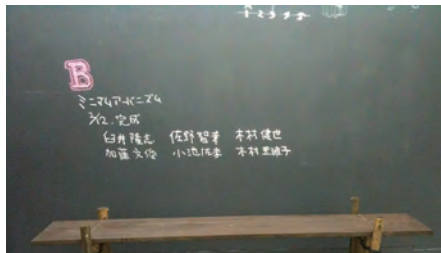 1 2 3 4 5
B
ミニマムアーバニズム
3/12. 完成
臼井隆志 佐野智章 木村健世
加藤文俊 小池佐季 木村亜維子